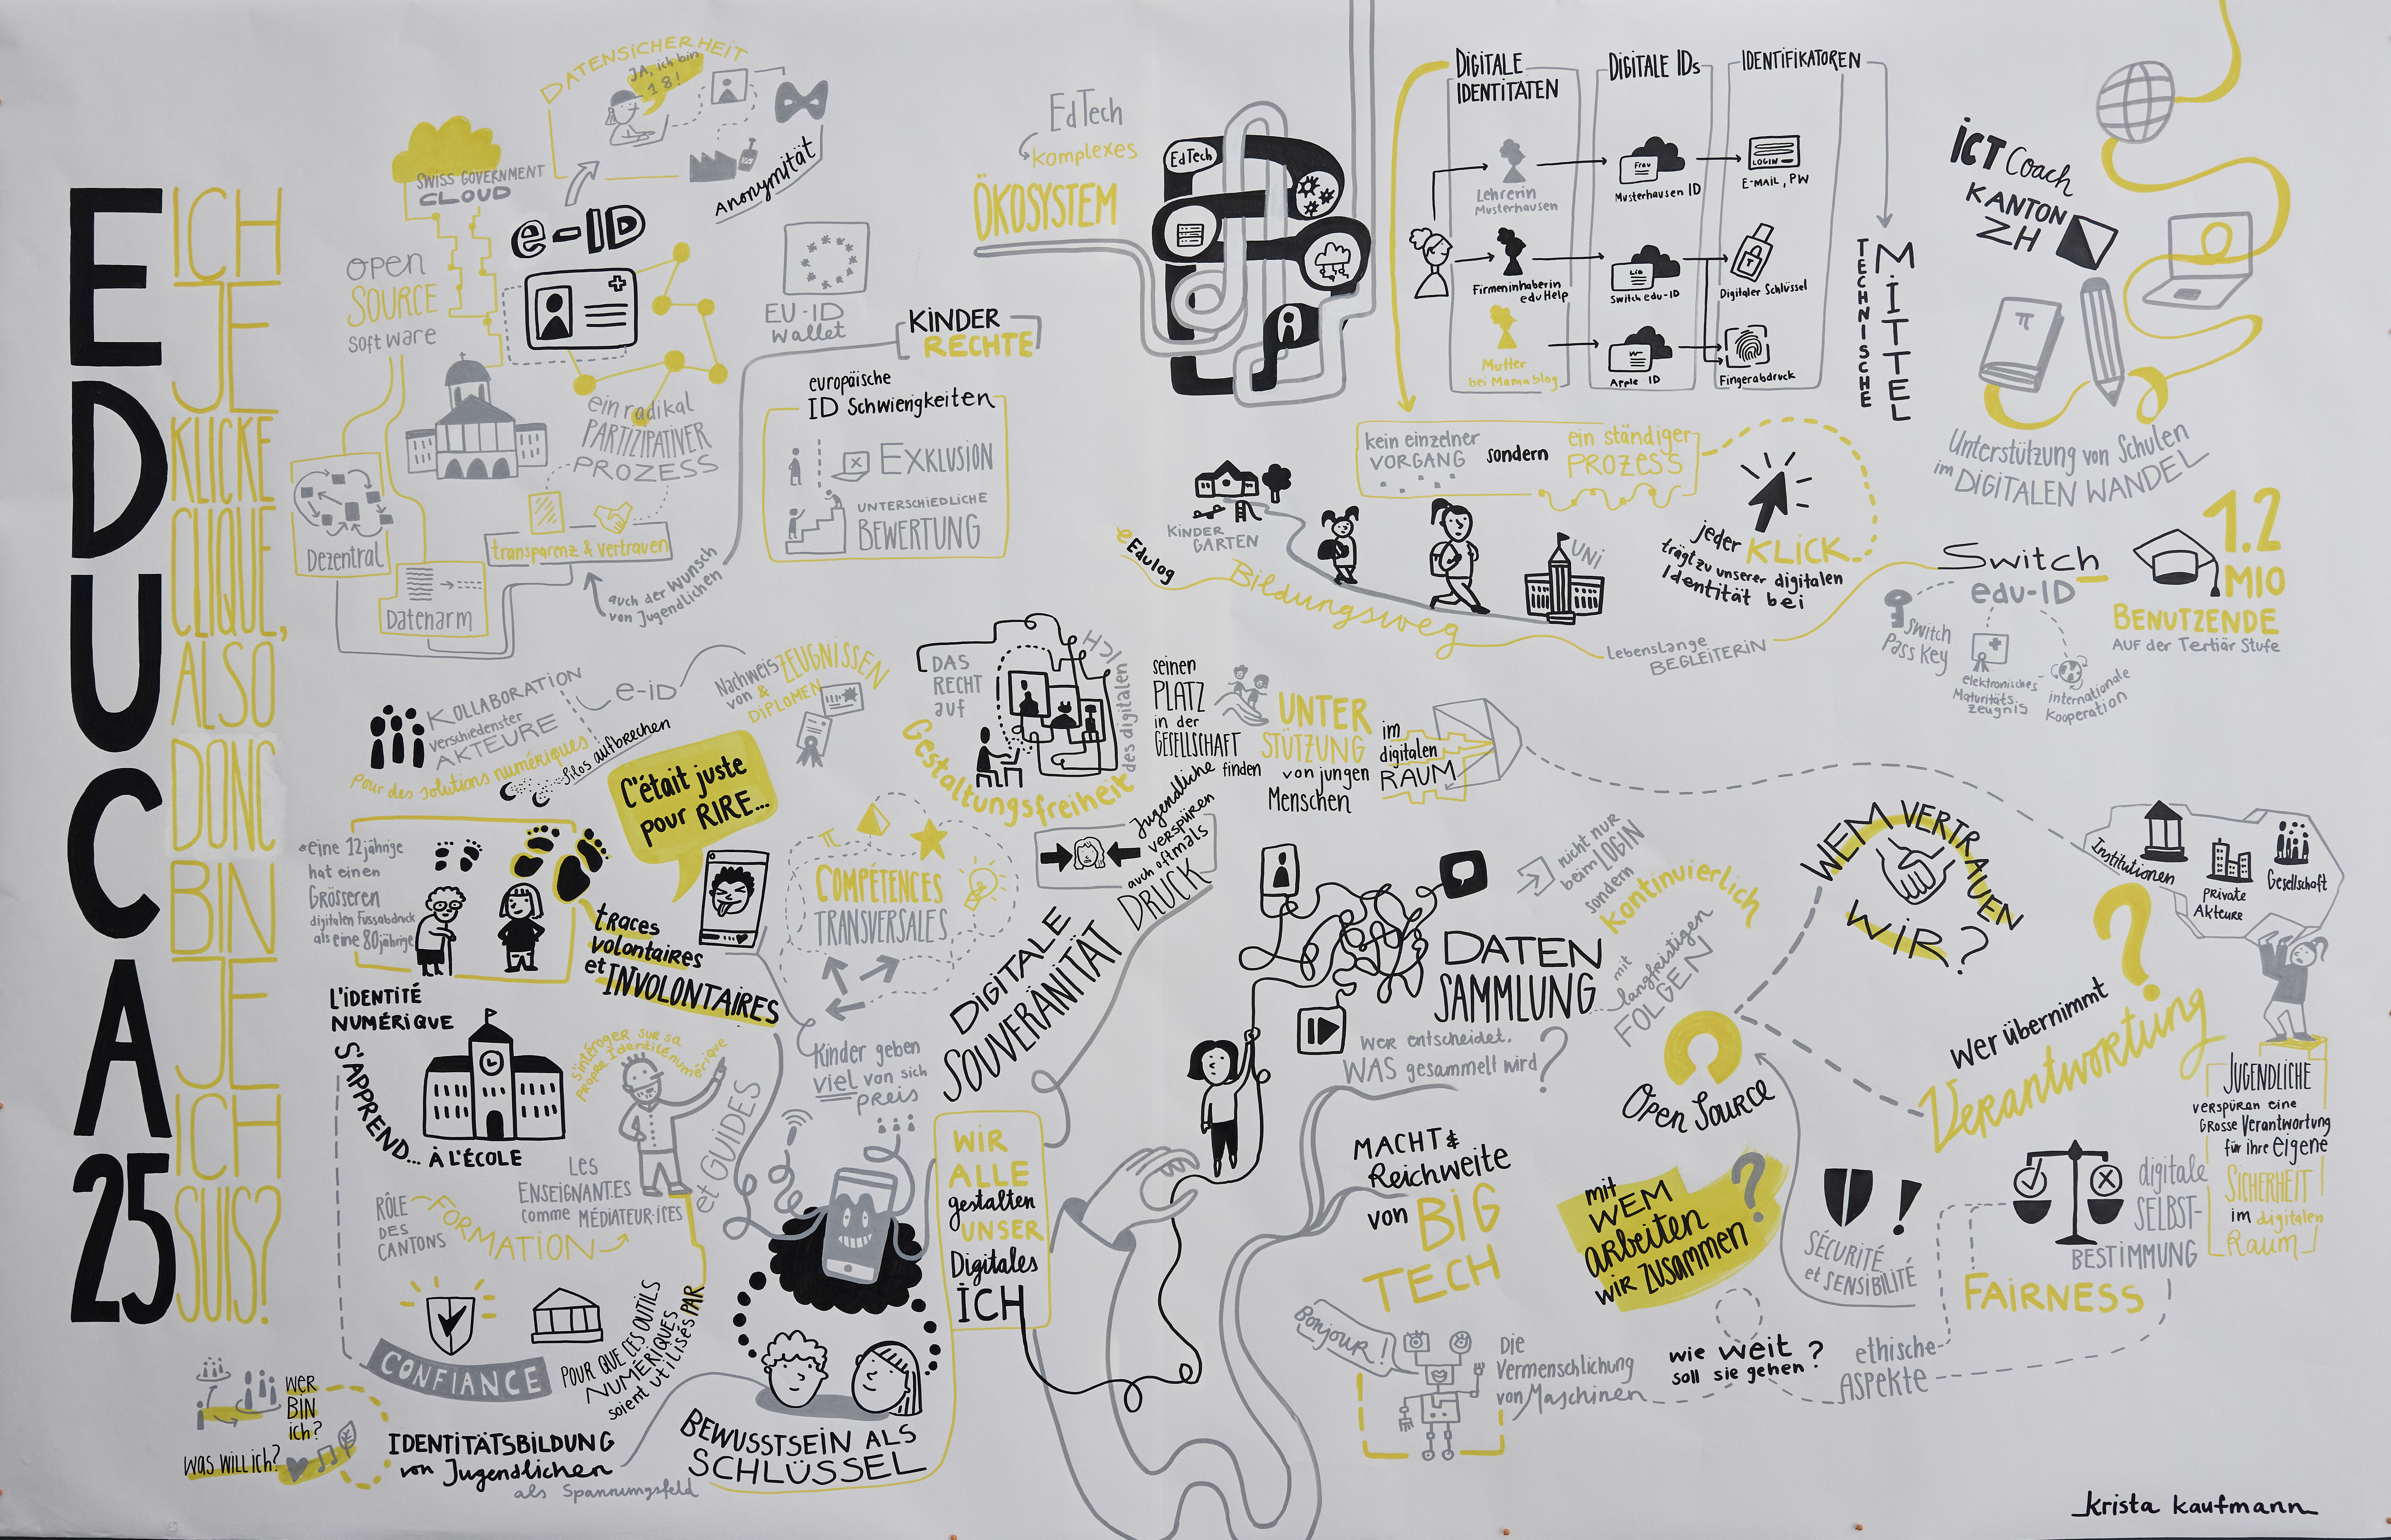 EDUCA 25
ICH
JE
KLICKE
CLIQUE,
ALSO
DONC
BIN
JE
ICH
SUIS?
DATENSICHERHEIT
JA, ich bin
18!
SWISS GOVERNMENT
CLOUD
Anonymität
e-ID
OPEN
SOURCE
Software
EU-ID
Wallet
KINDER
RECHTE
ein radikal
PARTIZIPATIVER
PROZESS
europäische
ID Schwierigkeiten
EXKLUSION
UNTERSCHIEDLICHE
BEWERTUNG
Dezentral
transparenz & vertrauen
Datenarm
auch der Wunsch
von Jugendlichen
EdTech
komplexes
ÖKOSYSTEM
EdTech
DIGITALE
IDENTITÄTEN
DIGITALE IDs
IDENTIFIKATOREN
Lehrerin
Musterhausen
Frau
Musterhausen ID
LOGIN
E-MAIL, PW
Firmeninhaberin
eduHelp
Lia
Switch edu-ID
Digitaler Schlüssel
Mutter
bei Mamablog
Apple ID
Fingerabdruck
TECHNISCHE
MITTEL
ICT Coach
KANTON
ZH
π
Unterstützung von Schulen
im DIGITALEN WANDEL
kein einzelner
VORGANG
sondern
ein ständiger
PROZESS
jeder KLICK
trägt zu unserer digitalen
Identität bei
KINDER
GARTEN
eEdulog
Bildungsweg
UNI
Lebenslange
BEGLEITERIN
Switch
edu-ID
Switch
Pass Key
elektronisches
Maturitäts
zeugnis
internationale
Kooperation
1.2
MIO
BENUTZENDE
AUF der Tertiär Stufe
KOLLABORATION
verschiedenster
AKTEURE
pour des solutions numériques
Silos aufbrechen
e-iD
Nachweis
von ZEUGNISSEN
& DIPLOMEN
DAS
RECHT
auf
Gestaltungsfreiheit
des digitalen
ICH
seinen
PLATZ
in der
GESELLSCHAFT
finden
UNTER
STÜTZUNG
von jungen
Menschen
im
digitalen
RAUM
Jugendliche
verspüren
auch oftmals
DRUCK
eine 12jährige
hat einen
Grösseren
digitalen Fussabdruck
als eine 80jährige
C'était juste
pour RIRE...
traces
volontaires
et INVOLONTAIRES
π
COMPÉTENCES
TRANSVERSALES
DIGITALE
SOUVERÄNITÄT
Kinder geben
viel von sich
preis
L'IDENTITÉ
NUMÉRIQUE
S'APPREND...
À L'ÉCOLE
S'intéroger sur sa
propre Identité numérique
LES
ENSEIGNANT.ES
comme MÉDIATEUR·ICES
et GUIDES
RÔLE
DES
CANTONS
FORMATION
CONFIANCE
POUR QUE CES OUTILS
NUMÉRIQUES
soient utilisés PAR
WER
BIN
ich?
WAS WILL ich?
IDENTITÄTSBILDUNG
von Jugendlichen
als Spannungsfeld
BEWUSSTSEIN ALS
SCHLÜSSEL
WIR
ALLE
gestalten
UNSER
Digitales
ICH
DATEN
SAMMLUNG
Wer entscheidet,
WAS gesammelt wird?
nicht nur
beim LOGIN
sondern
kontinuierlich
mit
langfristigen
FOLGEN
Open Source
WEM VERTRAUEN
WIR?
Institutionen
private
Akteure
Gesellschaft
Wer übernimmt
Verantwortung
?
JUGENDLICHE
verspüren eine
Grosse Verantwortung
für ihre eigene
SICHERHEIT
im digitalen
Raum
MACHT &
Reichweite
von BIG
TECH
mit
WEM
arbeiten
wir zusammen
?
SÉCURITÉ
et SENSIBILITÉ
!
digitale
SELBST-
BESTIMMUNG
FAIRNESS
Bonjour!
Die
Vermenschlichung
von Maschinen
wie weit
soll sie gehen?
ethische
ASPEKTE
krista kaufmann